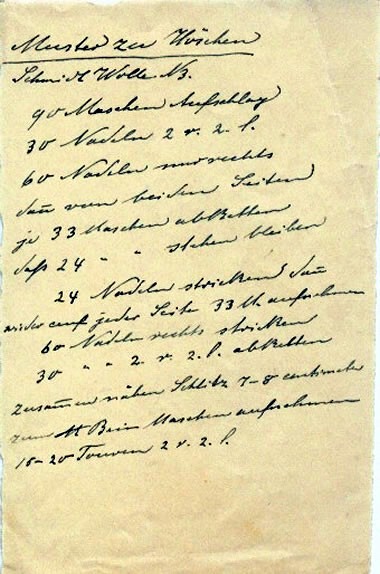 Muster zu Höschen
Schmidt Wolle N3.
90 Maschen Aufschlag
30 Nadeln 2 r. 2 l.
60 Nadeln nur rechts
dan̄ von beiden Seiten
je 33 Maschen abketten
daß 24 " " stehen bleiben
24 Nadeln stricken dan̄
wieder auf jeder Seite 33 M. aufnehmen
60 Nadeln rechts stricken
30 " " 2. r. 2. l. abketten
zusam̄en nähen Schlitz 7-8 centimeter
zum Bein Maschen aufnehmen
18-20 Touren 2 r. 2 l.